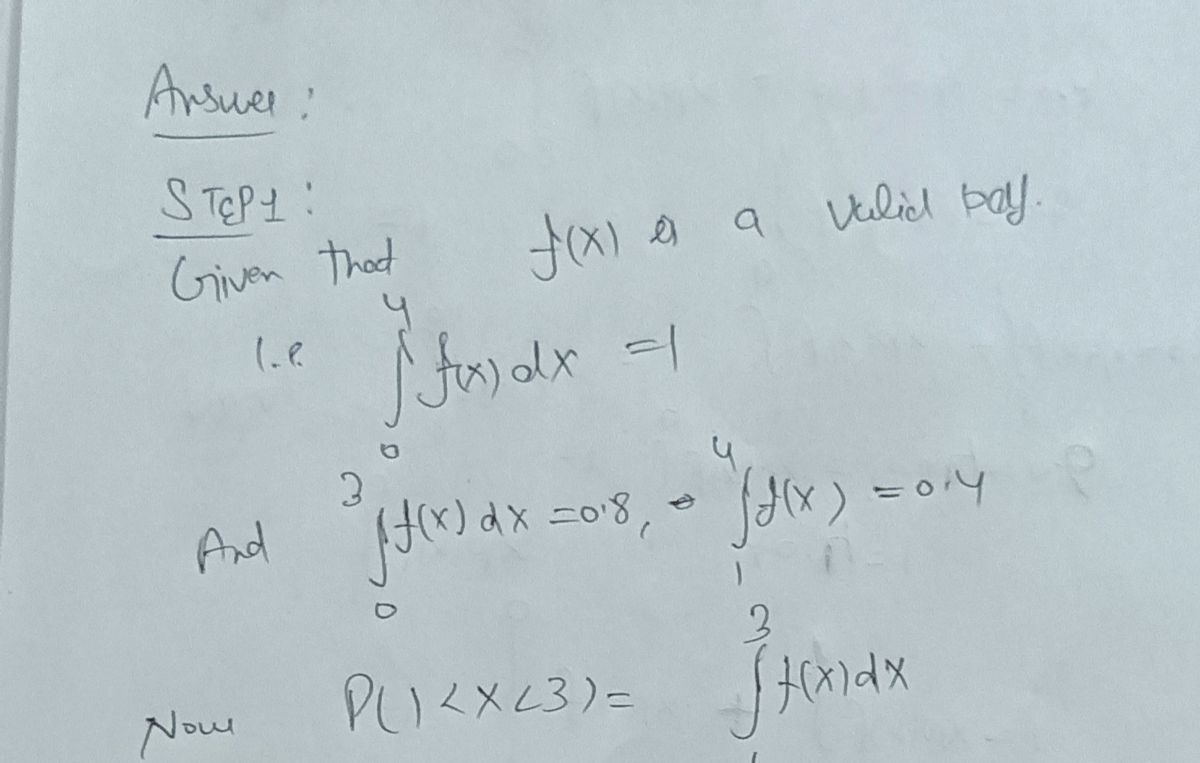 Answer:
STEP 1:
Given that f(x) is a valid pdf.
I.e ∫₀⁴ f(x) dx = 1
And ∫₀³ f(x) dx = 0.8, ∫₁⁴ f(x) = 0.4
Now P(1<X<3) = ∫₁³ f(x) dx